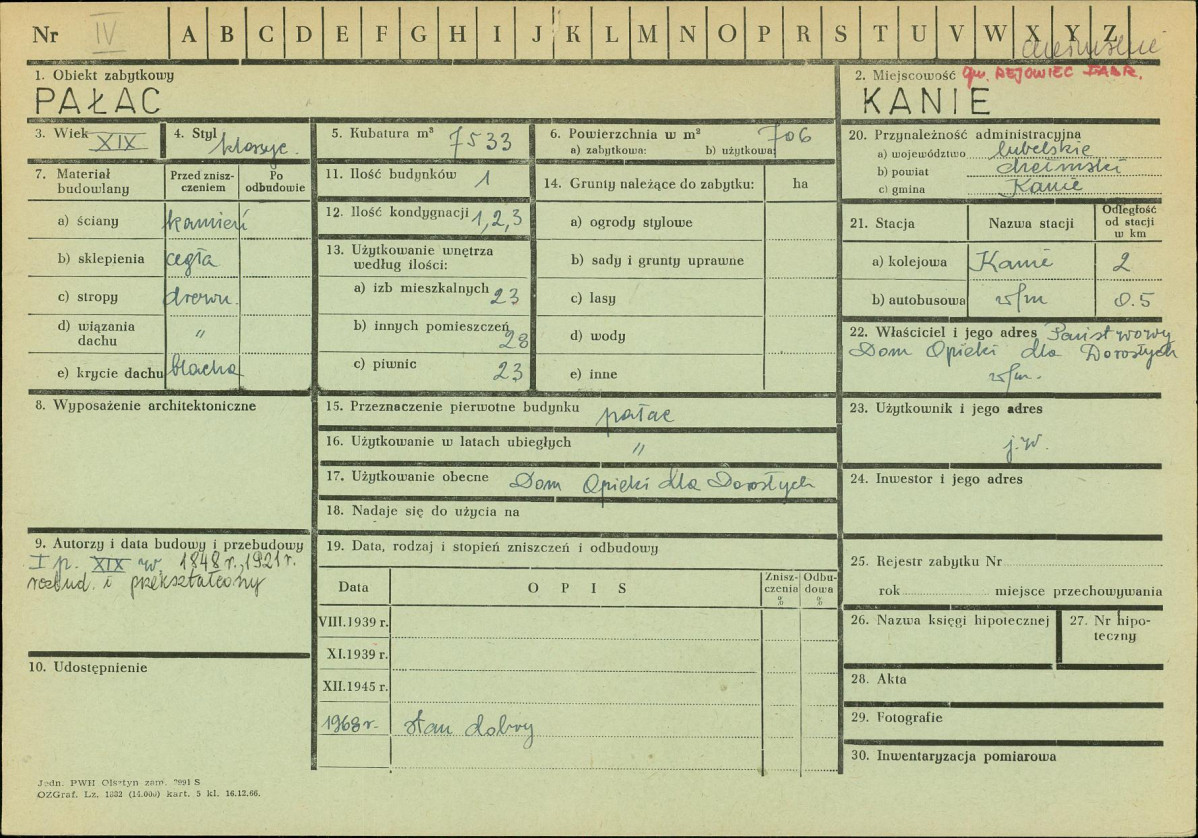 Nr IV A B C D E F G H I J K L M N O P R S T U V W X Y Z
chełmskie
1. Obiekt zabytkowy
PAŁAC
2. Miejscowość gm. REJOWIEC FABR.
KANIE
3. Wiek XIX
4. Styl klasyc.
5. Kubatura m³ 7533
6. Powierzchnia w m² 706
a) zabytkowa: b) użytkowa:
7. Materiał budowlany
Przed znisz-
czeniem
Po
odbudowie
a) ściany kamień
b) sklepienia cegła
c) stropy drewn.
d) wiązania
dachu "
e) krycie dachu blacha
11. Ilość budynków 1
12. Ilość kondygnacji 1, 2, 3
13. Użytkowanie wnętrza
według ilości:
a) izb mieszkalnych 23
b) innych pomieszczeń 28
c) piwnic 23
14. Grunty należące do zabytku: ha
a) ogrody stylowe
b) sady i grunty uprawne
c) lasy
d) wody
e) inne
20. Przynależność administracyjna
a) województwo lubelskie
b) powiat chełmski
c) gmina Kanie
21. Stacja
Nazwa stacji
Odległość
od stacji
w km
a) kolejowa Kanie 2
b) autobusowa w/m 0.5
22. Właściciel i jego adres Państwowy
Dom Opieki dla Dorosłych
w/m.
8. Wyposażenie architektoniczne
15. Przeznaczenie pierwotne budynku pałac
16. Użytkowanie w latach ubiegłych "
17. Użytkowanie obecne Dom Opieki dla Dorosłych
18. Nadaje się do użycia na
23. Użytkownik i jego adres
j.w.
24. Inwestor i jego adres
9. Autorzy i data budowy i przebudowy
I p. XIX w, 1848 r., 1921 r.
rozbud. i przekształcony
10. Udostępnienie
19. Data, rodzaj i stopień zniszczeń i odbudowy
Data
O P I S
Znisz-
czenia
%
Odbu-
dowa
%
VIII.1939 r.
XI.1939 r.
XII.1945 r.
1968 r. stan dobry
25. Rejestr zabytku Nr
rok miejsce przechowywania
26. Nazwa księgi hipotecznej
27. Nr hipo-
teczny
28. Akta
29. Fotografie
30. Inwentaryzacja pomiarowa
Jedn. PWH Olsztyn zam. 2991 S
OZGraf. Lz. 1832 (14.000) kart. 5 kl. 16.12.66.